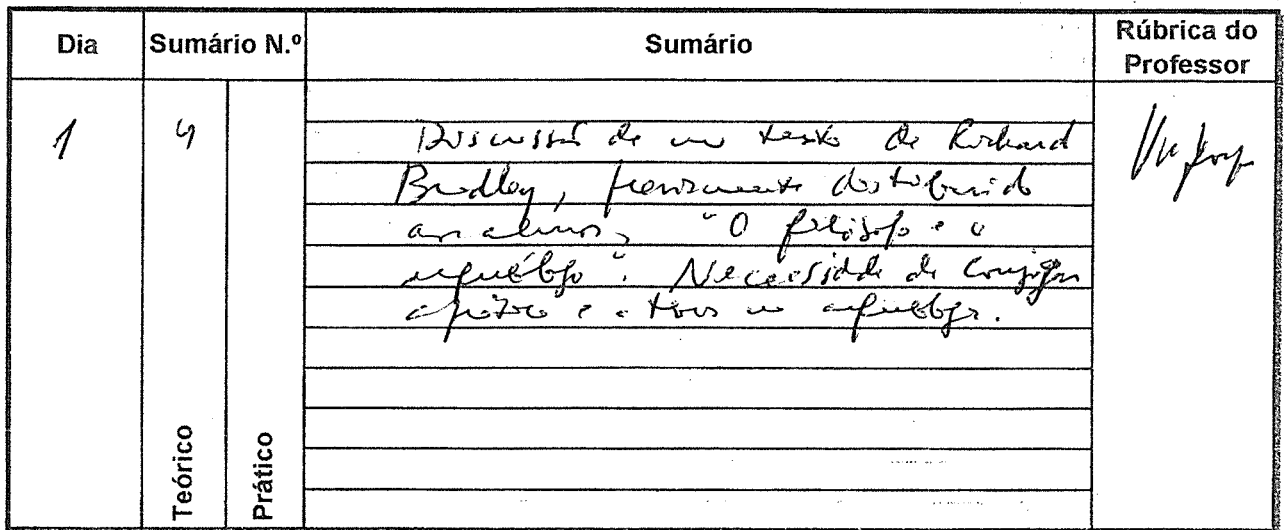 Dia Sumário N.º Sumário Rúbrica do Professor
1 4
Discussão de um texto de Richard
Bradley, previamente distribuído
aos alunos, "O filósofo e o
arqueólogo". Necessidade de conjugar
a prática e a teoria em arqueologia.
Teórico Prático